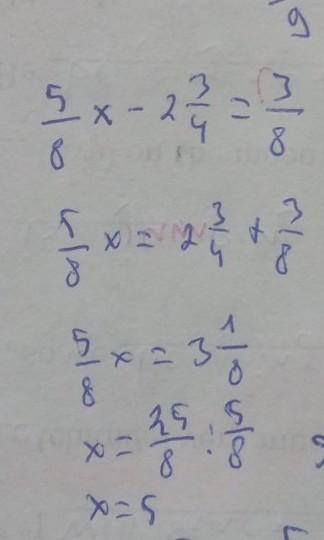 9
5/8 x - 2 3/4 = 3/8
5/8 x = 2 3/4 + 3/8
5/8 x = 3 1/8
x = 25/8 : 5/8
x = 5